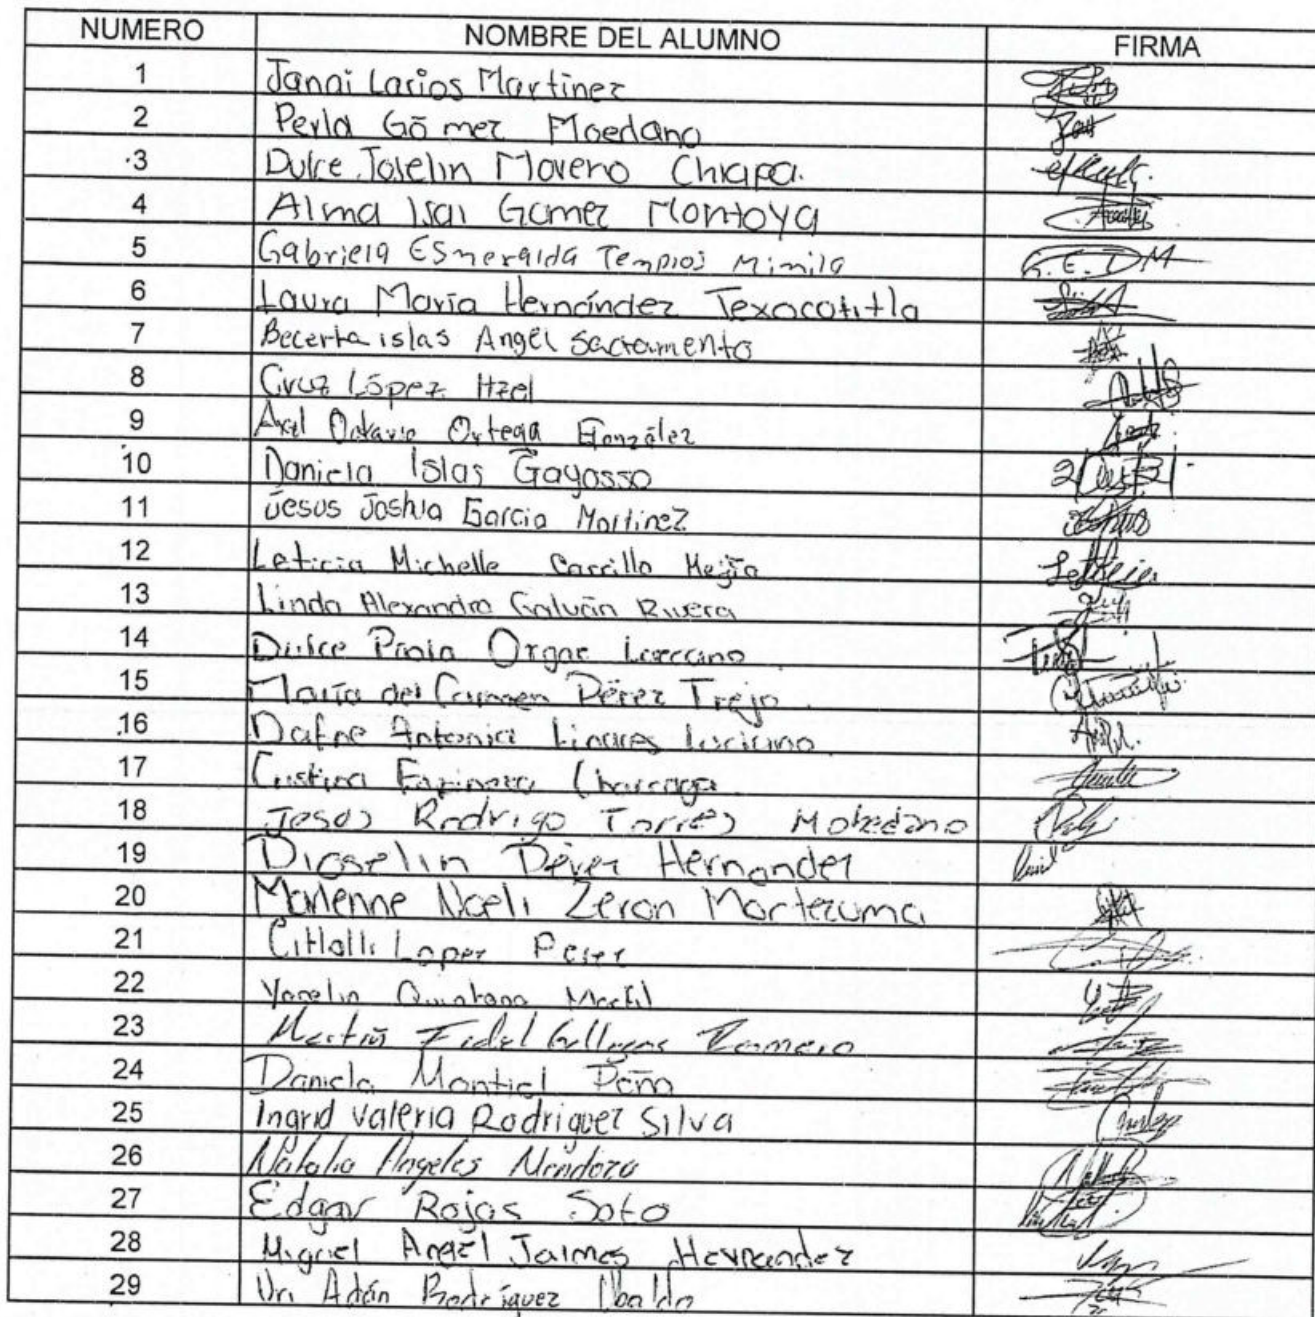 NUMERO NOMBRE DEL ALUMNO FIRMA
1 Janai Larios Martinez
2 Perla Gómez Moedano
3 Dulce Joselin Moreno Chiapa.
4 Alma Isai Gomez Montoya
5 Gabriela Esmeralda Templos Mimila G.E.T.M
6 Laura María Hernández Texocotitla
7 Becerra islas Angel Sacramento
8 Cruz López Itzel
9 Axel Octavio Ortega González
10 Daniela Islas Gayosso
11 Jesus Joshua Garcia Martinez
12 Leticia Michelle Carrillo Mejía
13 Linda Alexandra Galván Rivera
14 Dulce Paola
15 María del Carmen Pérez Trejo
16 Dafne Antonia Linares Luciano
17 Cristina Espinoza
18 Jesus Rodrigo Torres
19 Dioselin Pérez Hernandez
20 Marlenne Noeli Zeron Moctezuma
21 Citlalli Lopez Perez
22 Yoselin Quintana
23 Martín Fidel Gallegos Romero
24 Daniela Montiel Peña
25 Ingrid Valeria Rodriguez Silva
26 Natalia Angeles Mendoza
27 Edgar Rojas Soto
28 Miguel Angel Jaimes Hernandez
29 Uri Adán Rodríguez Ubaldo